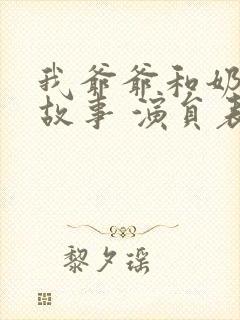 我爷爷和奶
故事 演员表
黎夕瑶